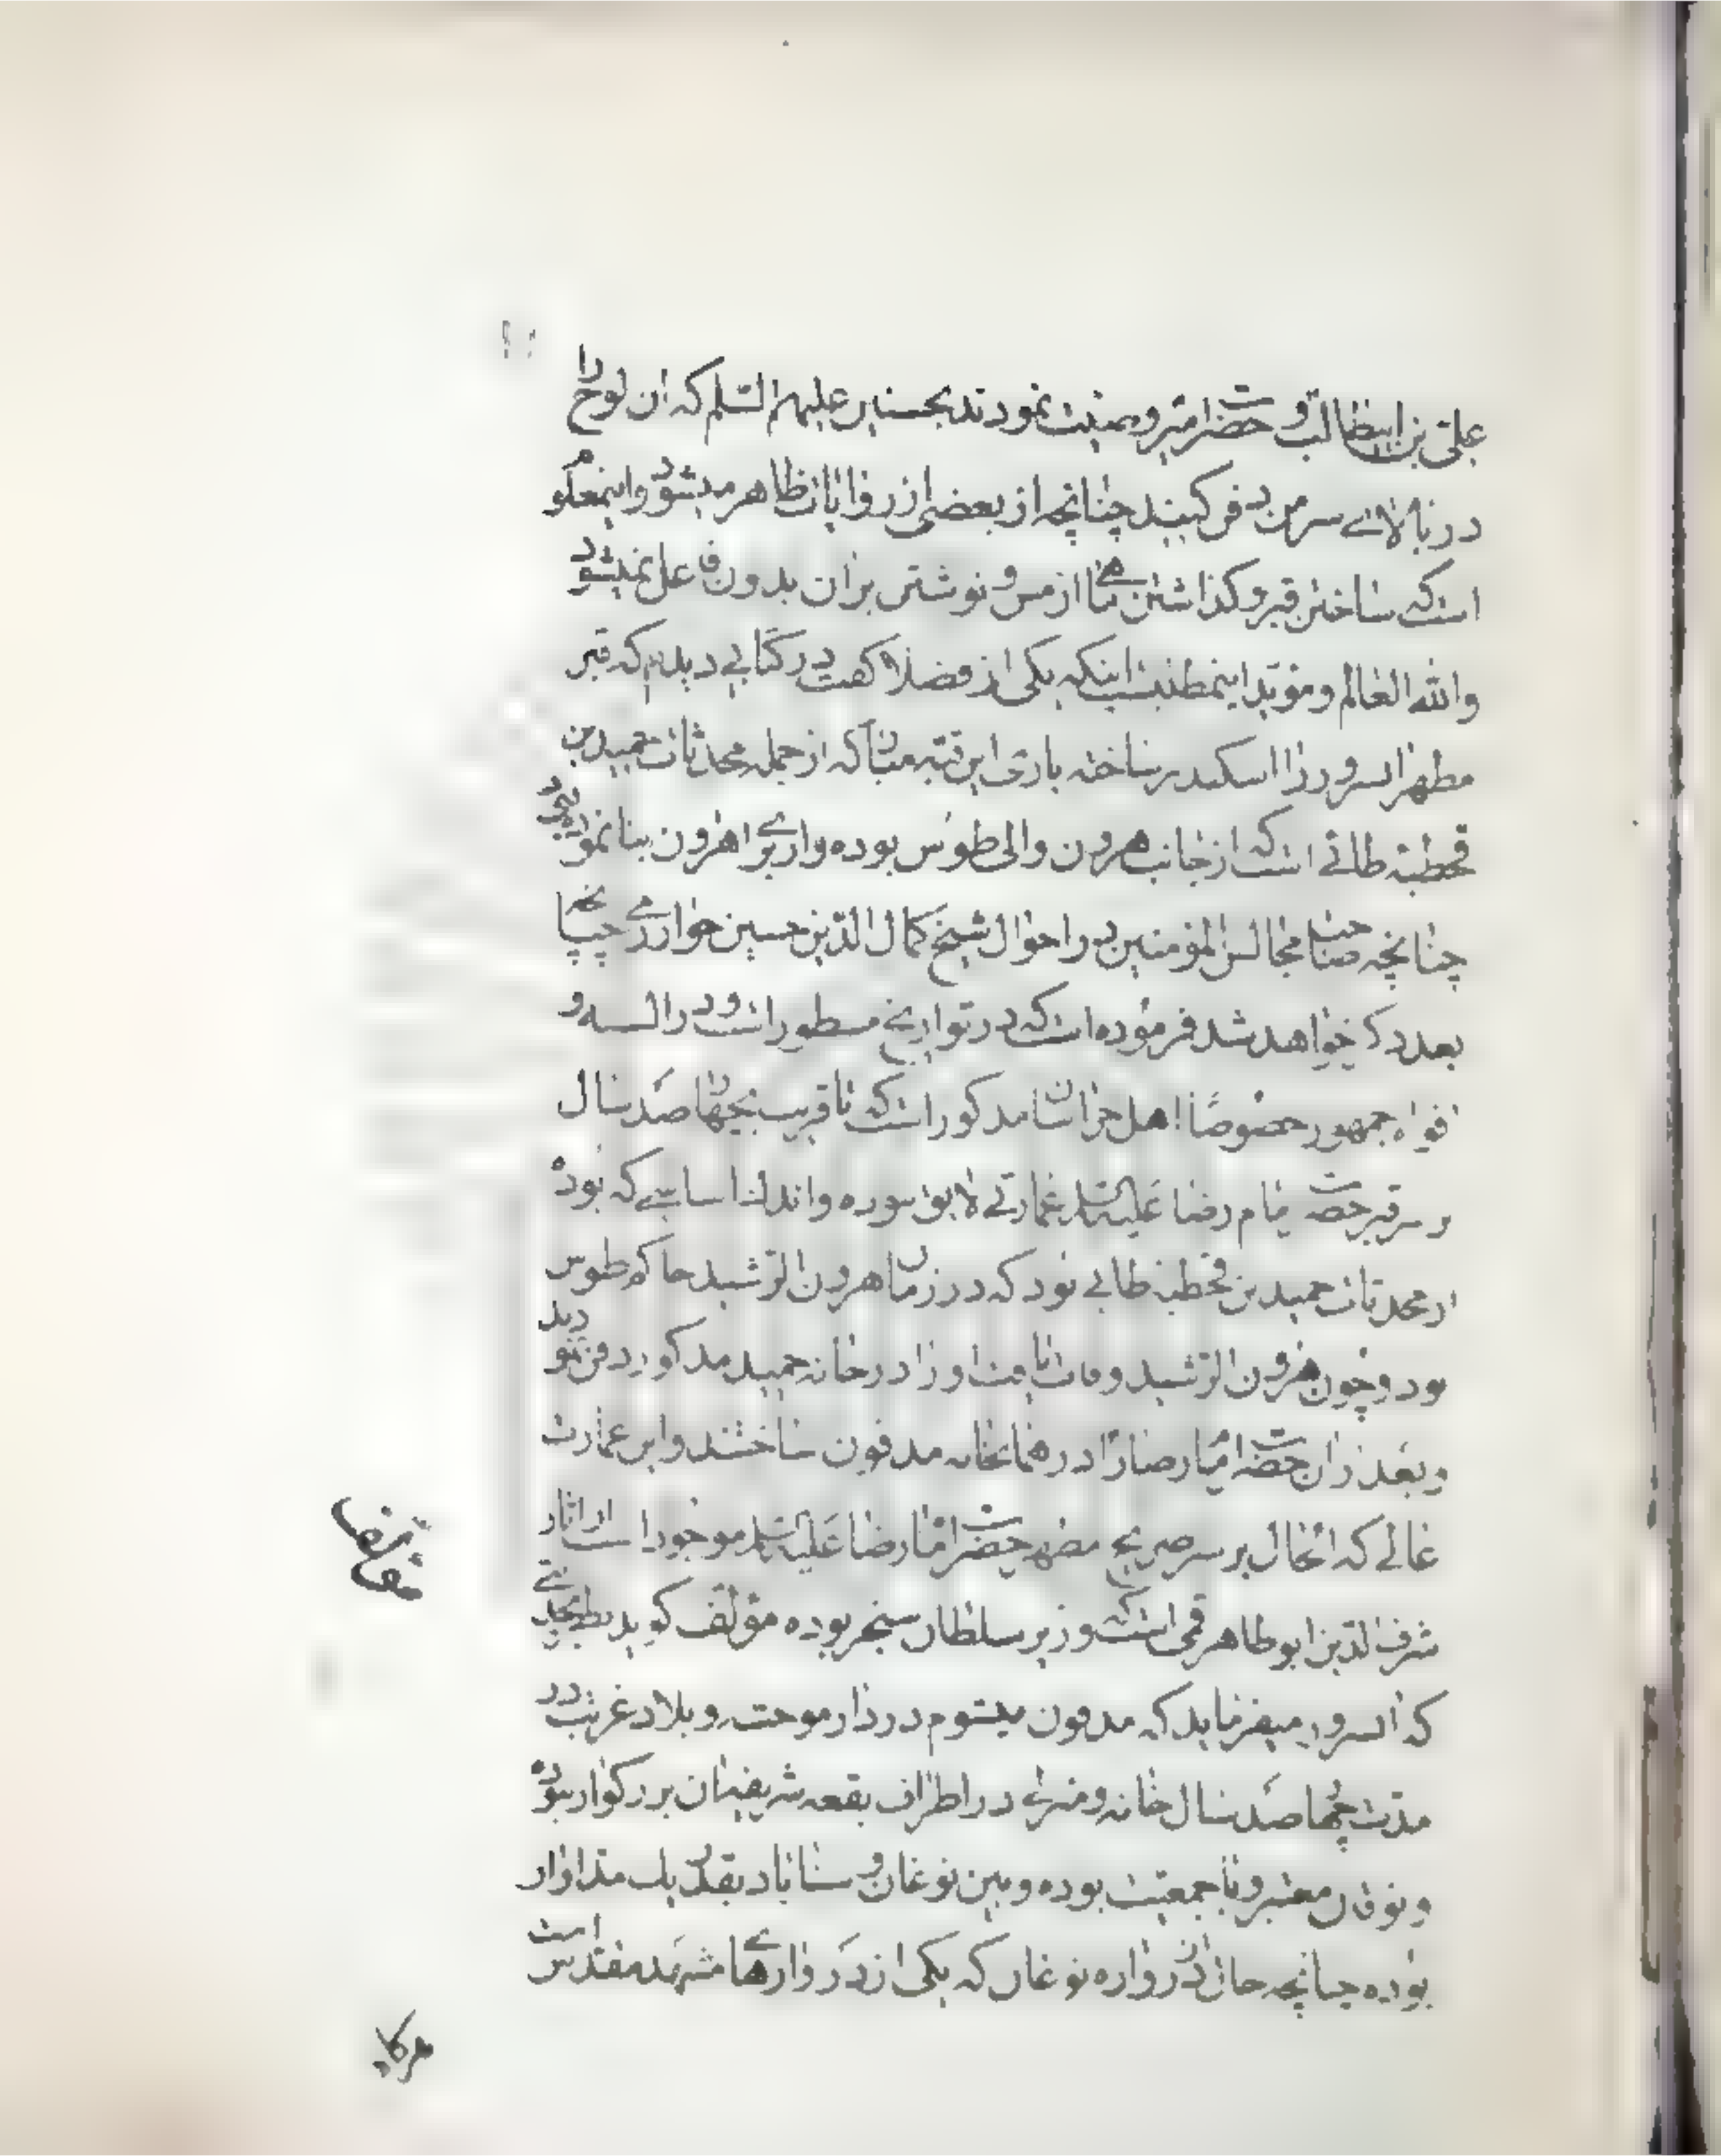 علی بن ابیطالب و حضرت امیر وصیت نمودند بحسنین علیهم السلم که ان لوح را
در بالای سر من دفن کنید چنانچه از بعضی از روایات ظاهر میشود و اینمعلوم
است که ساختن قبر و گذاشتن از مس و نوشتن بران بدون فاعل نمیشود
والله العالم و مؤید اینمطلبست اینکه یکی از فضلا گفت در کتابی دیدم که قبر
مطهر انسرور را اسکندر ساخته باری این قبه از جمله محدثات حمید بن
قحطبه طائی است که از جانب هرون والی طوس بوده و از برای هرون بنا نموده
چنانچه صاحب مجالس المؤمنین در احوال شیخ کمال الدین حسین خوارزمی چنانچه
بعد ذکر خواهد شد فرموده است که در تواریخ مسطور است و در السنه و
افواه جمهور خصوصا اهل خراسان مذکور است که تا قریب بچهار صد سال
بر سر قبر حضرت امام رضا علیه السلم عمارتی لایق نبوده و اندک اساسی که بوده
از محدثات حمید بن قحطبه طایی بود که در زمان هرون الرشید حاکم طوس
بود و چون هرون الرشید وفات یافت او را در خانه حمید مذکور دفن نمودند
و بعد از ان حضرت امام رضا را در همانخانه مدفون ساختند و این عمارت
عالی که الحال بر سر ضریح مطهر حضرت امام رضا علیه السلم موجود است از اثار
شرف الدین ابو طاهر قمی است که وزیر سلطان سنجر بوده مؤلف کوید
که انسرور میفرماید که مدفون میشوم در دار موحشه و بلاد غربت در
مدت چهار صد سال خانه و منزلی در اطراف بقعه شریفه ان بزرکوار نبوده
و نوقان معتبر و با جمعیت بوده و بین نوغان و سناباد بقدر یک میدان راه
بوده چنانچه حال ان دروازه نوغان که یکی از دروازهای مشهد مقدس است